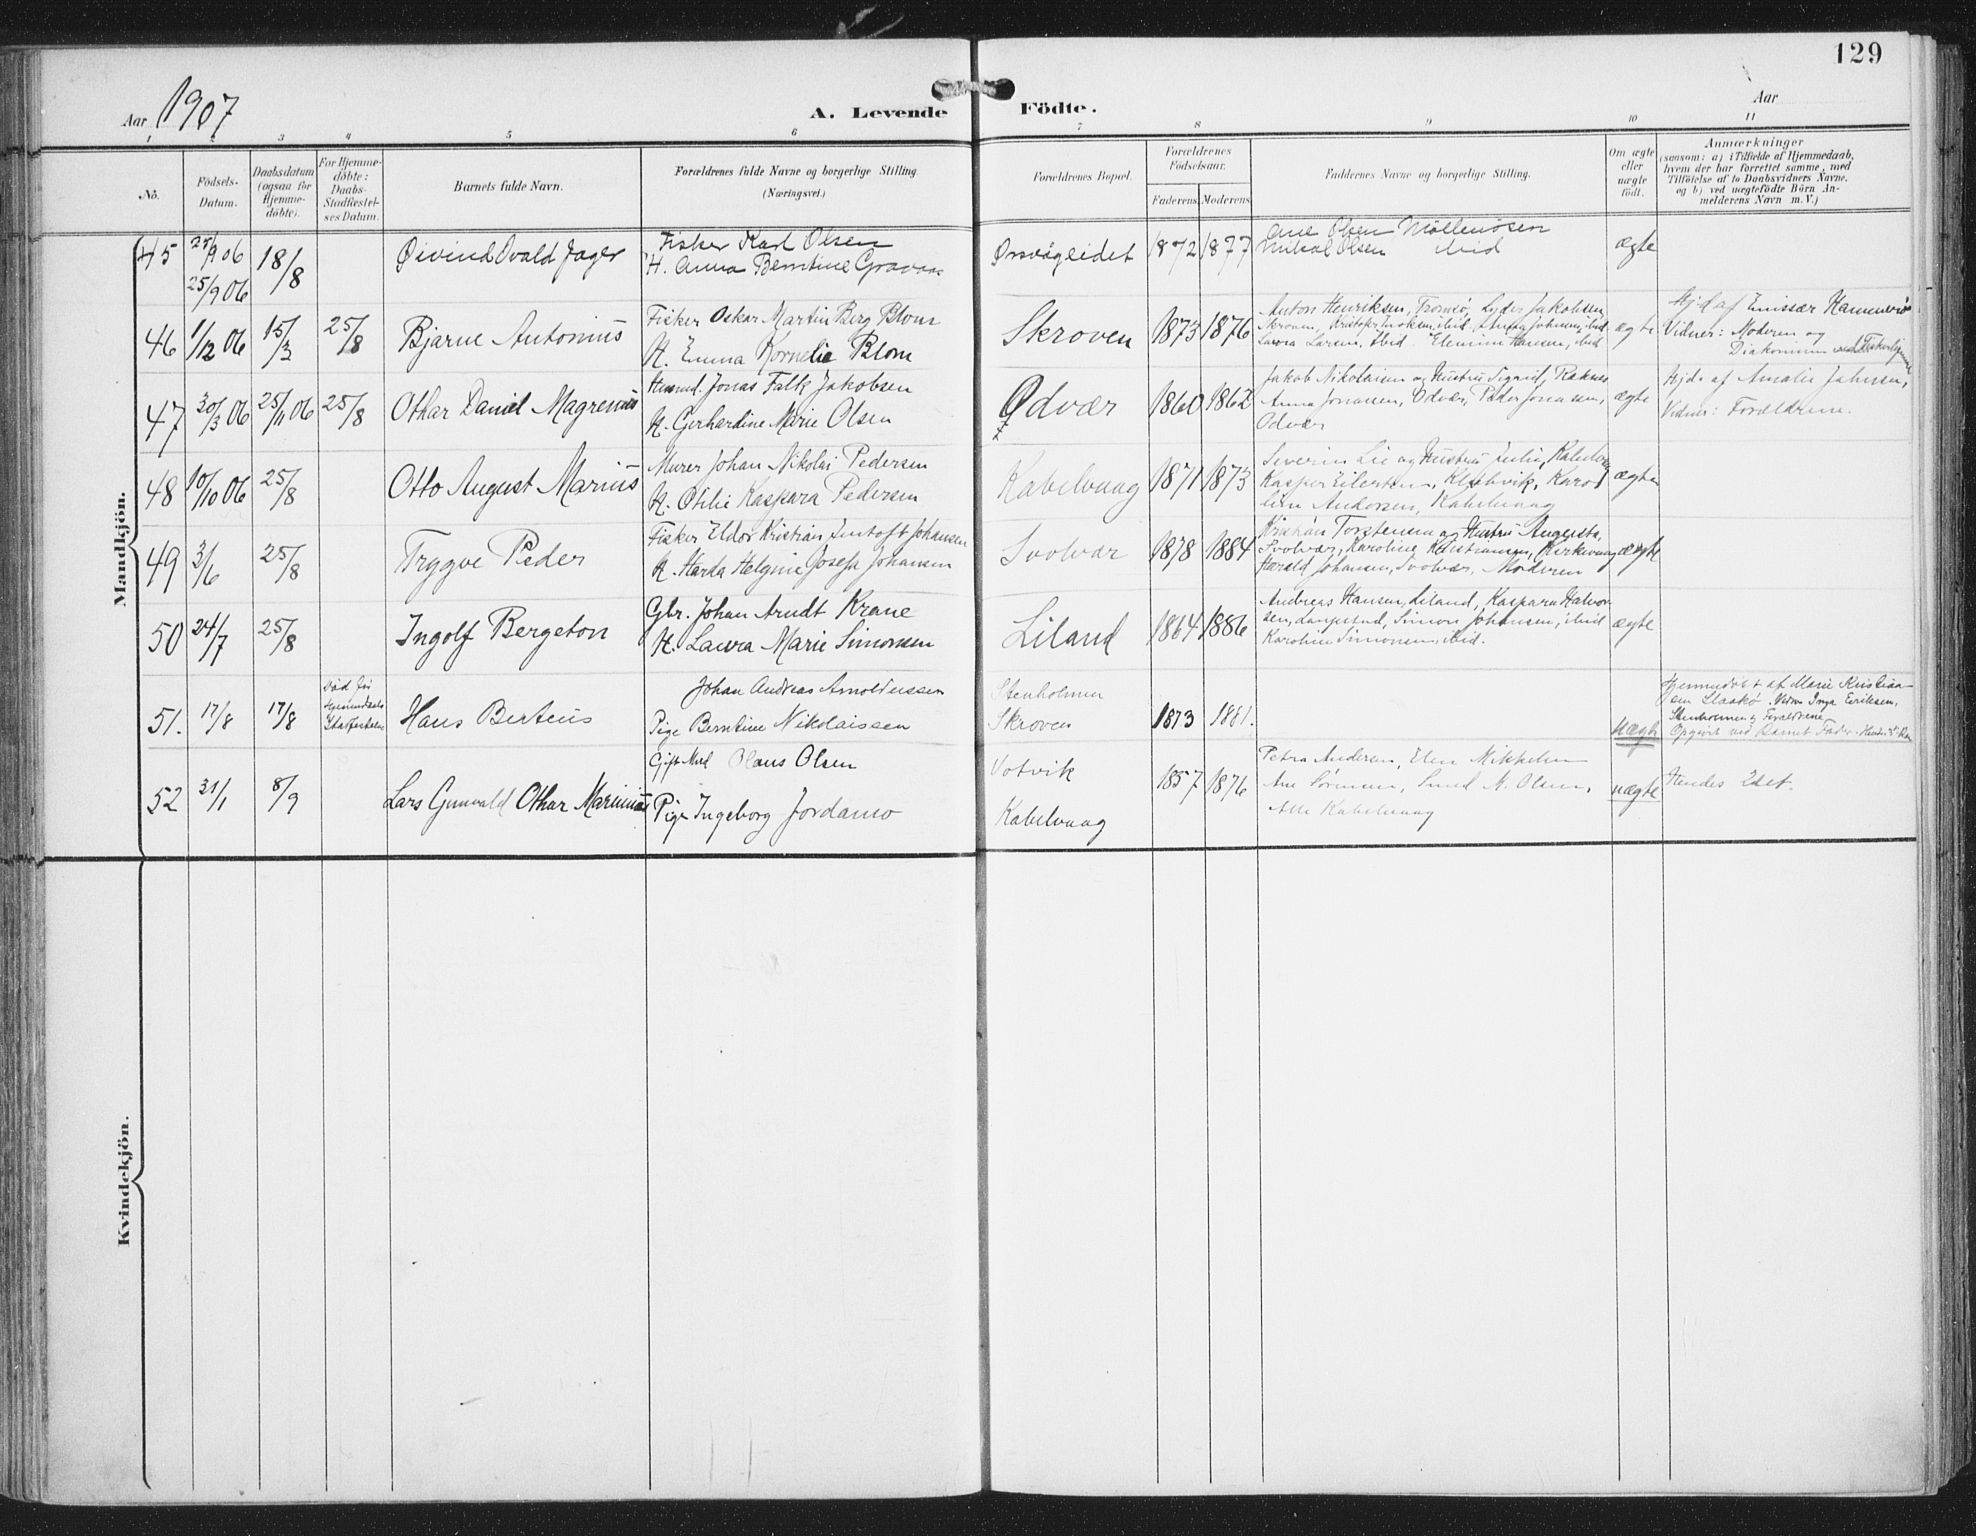 129
Aar 1907
A. Levende Födte.
Aar
1 2 3 4 5 6 7 8 9 10 11
No.
Födsels-Datum.
Daabsdatum (ogsaa for Hjemmedöbte).
For Hjemmedöbte: Daabs-Stadfæstelses Datum.
Barnets fulde Navn.
Forældrenes fulde Navne og borgerlige Stilling. (Næringsvei.)
Forældrenes Bopæl.
Forældrenes Födselsaar.
Faderens Moderens
Faddernes Navne og borgerlige Stilling.
Om ægte eller uægte födt.
Anmærkninger (saasom: a) i Tilfælde af Hjemmedaab, hvem der har forrettet samme, med Tilföielse af to Daabsvidners Navne, og b) ved uægtefödte Börn Anmelderens Navn m. V.)
Mandkjön.
45 25/9 06 18/8 Øivind Ovald Jager
Fisker Karl Olsen
H. Anna Berntine Gravaas
Orsvågeidet 1872 1877
Ane Olsen Möllerosen
Mikal Olsen ibid
ægte
46 1/12 06 15/3 25/8 Bjarne Antonius
Fisker Oskar Martin Berg Blom
H. Emma Kornelie Blom
Skroven 1873 1876
Anton Henriksen, Tromsö, Lyder Jakobsen,
Skroven, Kristofer ibid. Anna Johnsen, ibid.
Laura Larsen, ibid. Hansen, ibid
ægte
Hjd af Emisær Hammerö
Vidner: Moderen og
47 30/3 06 25/11 06 25/8 Othar Daniel Magrenus
Husmd. Jonas Falk Jakobsen
H. Gerhardine Marie Olsen
Odvær 1860 1862
Jakob Nikolaisen og Hustru Sigrid, Raknes
Anna Jonassen, Odvær, Peder Jonassen,
Odvær
ægte
Hjd. af Amalie Jahnsen,
Vidner: Forældrene.
48 10/10 06 25/8 Otto August Marius
Murer Johan Nikolai Pedersen
H. Otilie Kaspara Pedersen
Kabelvaag 1871 1873
Severin Lie og Hustru Julie, Kabelvaag
Kasper Eilertsen, Karo
line Andersen, Kabelvaag
ægte
49 3/6 25/8 Trygve Peder
Fisker Eldor Kristian Johansen
H. Harda Helgine Josefa Johansen
Svolvær 1878 1884
Kristian Torstensen og Hustru Augusta,
Svolvær, Karoline Kristiansen, Kirkevaag
Harald Johansen, Svolvær, Moderen
ægte
50 24/7 25/8 Ingolf Bergeton
Gbr. Johan Arndt Krane
H. Laura Marie Simonsen
Liland 1864 1886
Andreas Hansen, Liland, Kaspara Halvor
sen, Langestad, Simon Johansen, ibid
Karoline Simonsen, ibid.
ægte
51. 17/8 17/8 Död för Hjemmedaabs Stadfestelsen Hans Berteus
Johan Andreas Arnoldussen
Pige Berntine Nikolaissen
Stenholmen
Skroven
1873 1881.
uægte
Hjemmedöbt af Marie Kristian
sen Vidner Inga Eriksen,
Stenholmen og Forældrene
Opgivet ved Barnet Fader
52 31/1 8/9 Lars Gunvald Othar Marinius
Gift Md Olaus Olsen
Pige Ingeborg Jordamo
Votvik
Kabelvaag
1857 1876
Petra Andersen, Elen Mikkelsen
Ane Sörensen, Smed M. Olsen,
Alle Kabelvaag
uægte
Hendes 2det.
Kvindekjön.